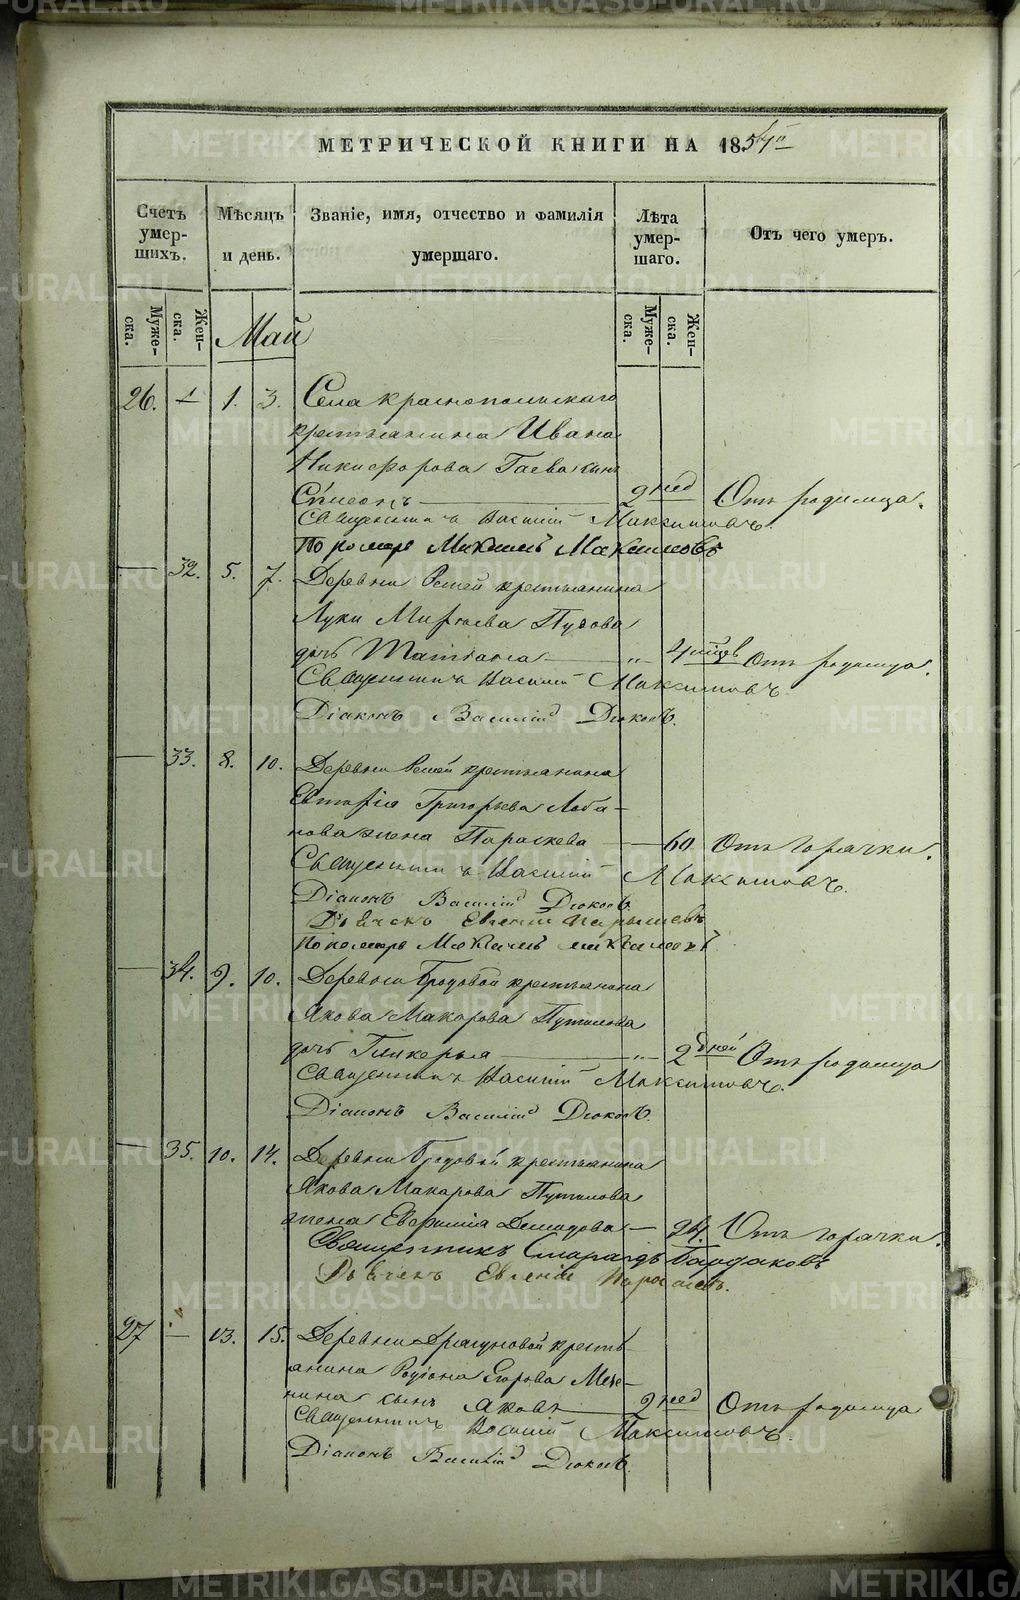 МЕТРИЧЕСКОЙ КНИГИ НА 1854й
Счетъ умер- шихъ.
Мѣсяцъ и день.
Званіе, имя, отчество и фамилія умершаго.
Лѣта умер- шаго.
Отъ чего умеръ.
Муже- ска.
Жен- ска.
Май
Муже- ска.
Жен- ска.
26. — 1. 3. Села Краснопольскаго
крестьянина Ивана
Никифорова сынъ
2 нед Отъ родимца.
Священникъ Василій Максимовъ.
Пономарь Максимъ Максимовъ
— 32. 5. 7. Деревни крестьянина
Луки Пузова
дочь Татіана — " 4 Отъ родимца.
Священникъ Василій Максимовъ
Діаконъ Василій Дюковъ.
— 33. 8. 10. Деревни крестьянина
Евтифія Григорьева Лоба-
нова жена Параскева — 60. Отъ горячки.
Священникъ Василій Максимовъ.
Діаконъ Василій Дюковъ.
Дьячекъ Евгеній
Пономарь Максимъ Максимовъ
— 34. 9. 10. Деревни Бродовой крестьянина
Якова Макарова Путилова
дочь Гликерья — " 2 дней Отъ родимца
Священникъ Василій Максимовъ.
Діаконъ Василій Дюковъ.
— 35. 10. 14. Деревни Бродовой крестьянина
Якова Макарова Путилова
жена Евфимія Демидова — 24. Отъ горячки.
Священникъ Смарагдъ
Дьячекъ Евгеній
27 — 13. 15. Деревни Драгуновой кресть-
янина Родіона Егорова
сынъ Яковъ — 2 нед Отъ родимца
Священникъ Василій Максимовъ.
Діаконъ Василій Дюковъ.
METRIKI.GASO-URAL.RU